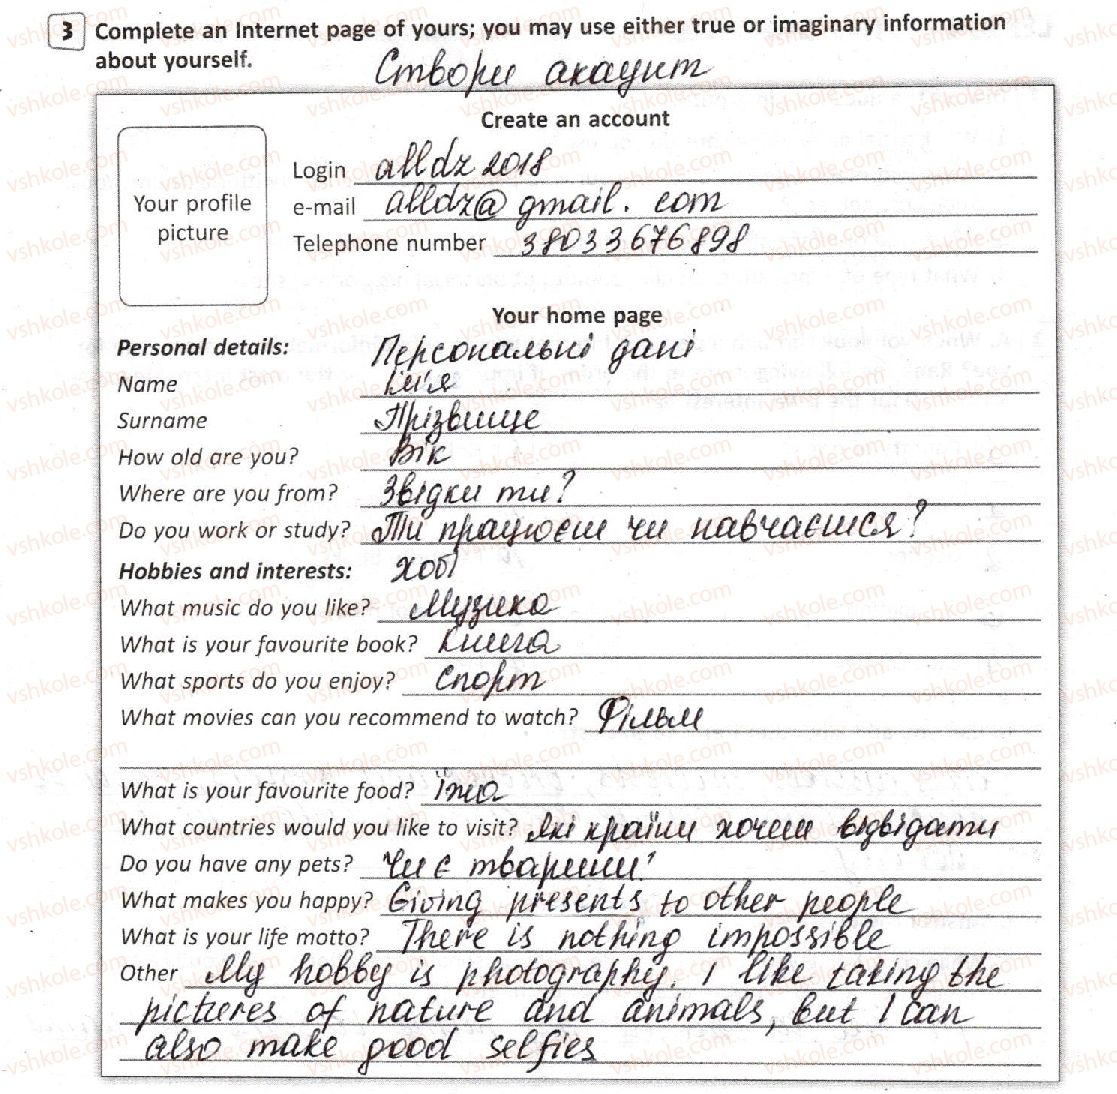 3 Complete an Internet page of yours; you may use either true or imaginary information
about yourself.
Створи акаунт
Create an account
Your profile
picture
Login alldz2018
e-mail alldz@gmail.com
Telephone number 38033676898
Your home page
Personal details: Персональні дані
Name Ім'я
Surname Прізвище
How old are you? Вік
Where are you from? Звідки ти?
Do you work or study? Ти працюєш чи навчаєшся?
Hobbies and interests: хобі
What music do you like? Музика
What is your favourite book? Книга
What sports do you enjoy? Спорт
What movies can you recommend to watch? Фільм
What is your favourite food? їжа
What countries would you like to visit? Які країни хочеш відвідати
Do you have any pets? Чи є тварини?
What makes you happy? Giving presents to other people
What is your life motto? There is nothing impossible
Other My hobby is photography. I like taking the
pictures of nature and animals, but I can
also make good selfies
vshkole.com